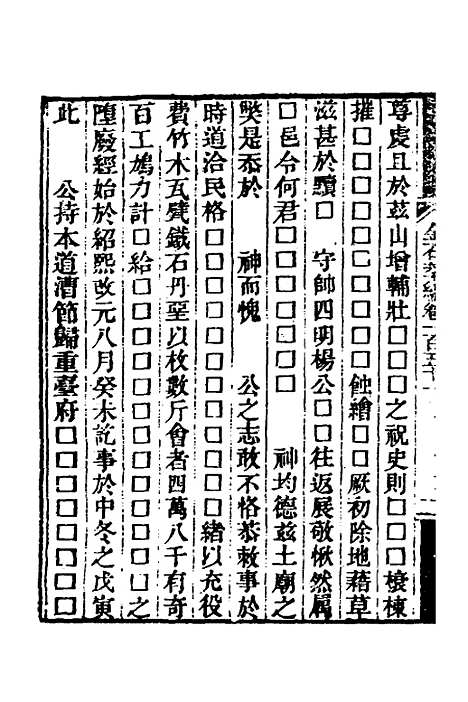 尊處且於茲山增輔壯□□□□之祝史則□□□榱棟
摧□□□□□□□□□□蝕繪□□厥初除地藉草
滋甚於黷□　守帥四明楊公□□往返展敬愀然屬
□邑令何君□□□□□□□□　神均德茲土廟之
獘是忝於　神而愧　公之志敢不恪恭敕事於
時道洽民格□□□□□□□□□□□緒以充役
費竹木瓦甓鐵石丹堊以枚數斤會者四萬八千有奇
百工鳩力計□給□□□□□□□□□□□□□之
墮廢經始於紹熙改元八月癸未訖事於中冬之戊寅
此　公持本道漕節歸重臺府□□□□□□□□
金石萃編卷一百五十